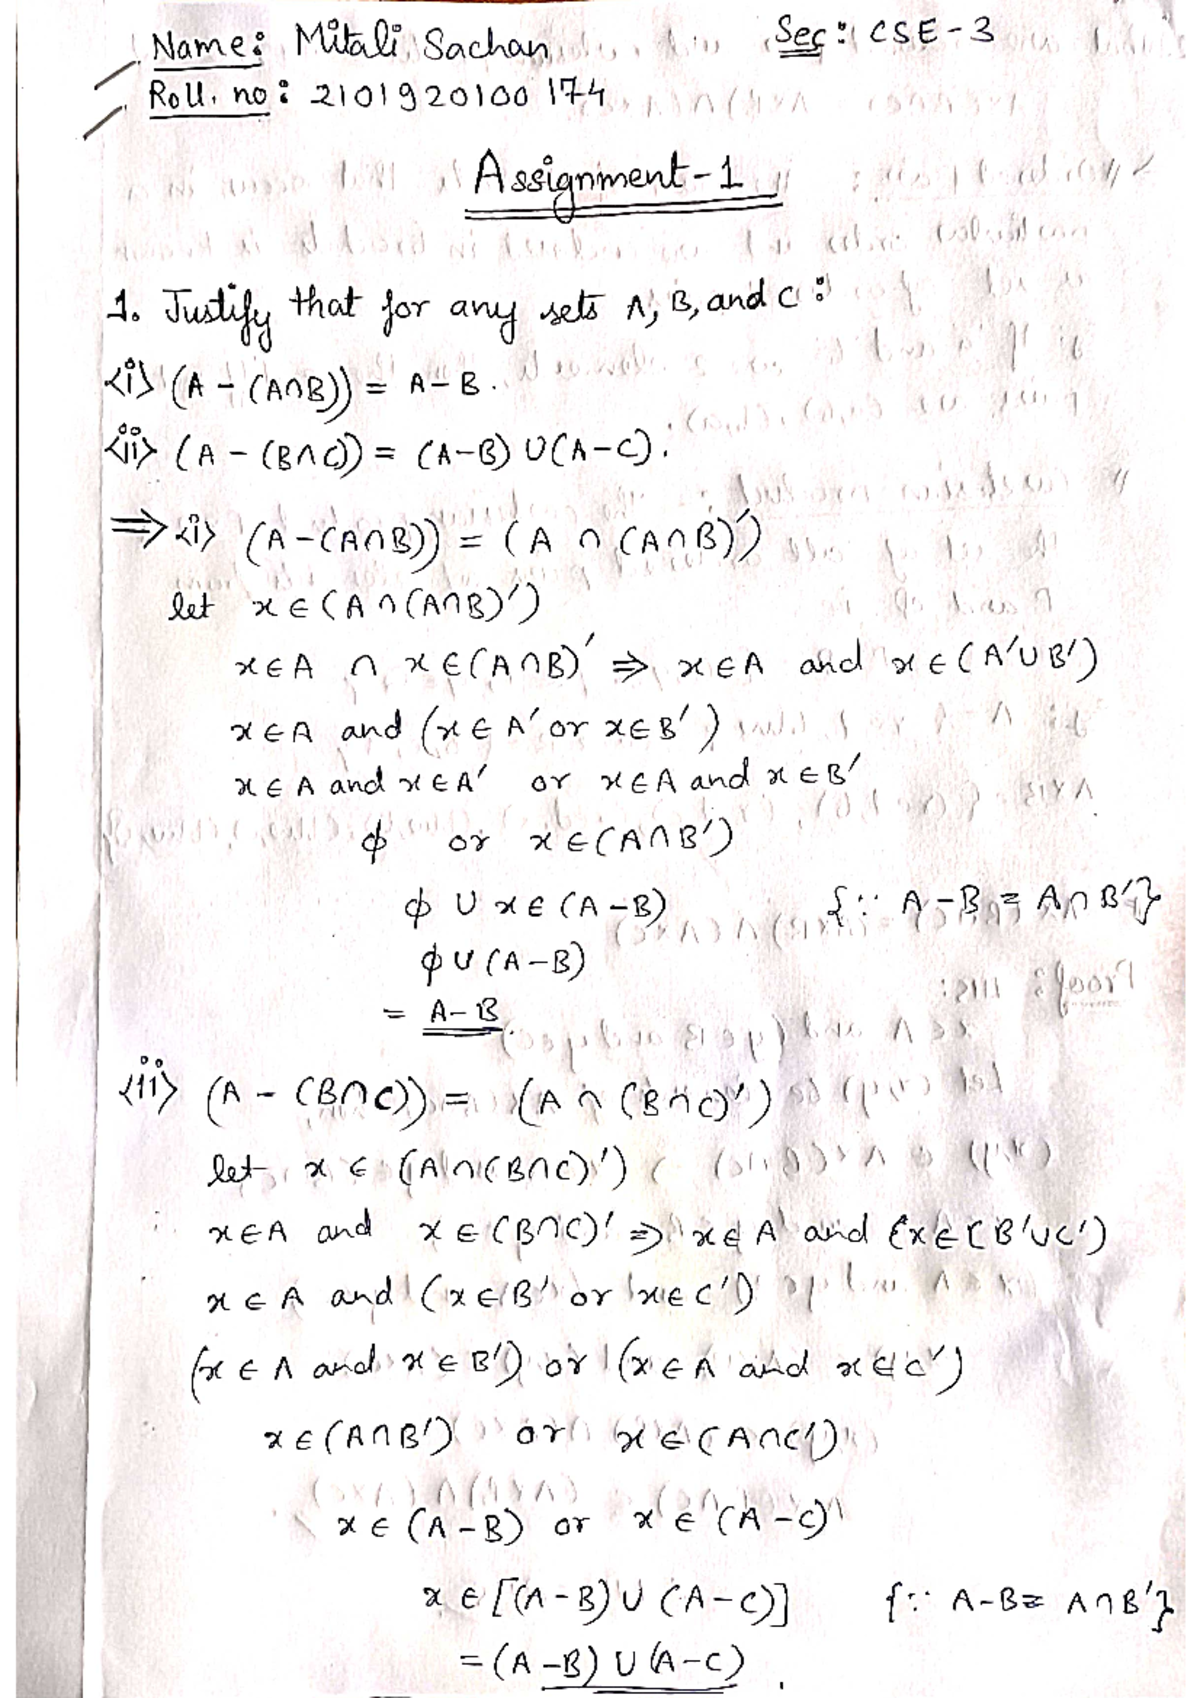 Name: Mitali Sachan Sec: CSE-3
Roll. no: 2101920100174
Assignment-1
1. Justify that for any sets A, B, and C:
<i> (A - (A∩B)) = A-B.
<ii> (A - (B∩C)) = (A-B) ∪ (A-C).
⇒ <i> (A-(A∩B)) = (A ∩ (A∩B)')
let x ∈ (A ∩ (A∩B)')
x∈A ∩ x∈(A∩B)' ⇒ x∈A and x∈(A'∪B')
x∈A and (x∈A' or x∈B')
x∈A and x∈A' or x∈A and x∈B'
ϕ or x∈(A∩B')
ϕ ∪ x∈(A-B) {∵ A-B = A∩B'}
ϕ∪(A-B)
= A-B
<ii> (A - (B∩C)) = (A ∩ (B∩C)')
let x ∈ (A∩(B∩C)')
x∈A and x∈(B∩C)' ⇒ x∈A and (x∈(B'∪C')
x∈A and (x∈B' or x∈C')
(x∈A and x∈B') or (x∈A and x∈C')
x∈(A∩B') or x∈(A∩C')
x∈(A-B) or x∈(A-C)
x∈[(A-B)∪(A-C)] {∵ A-B= A∩B'}
=(A-B)∪(A-C).